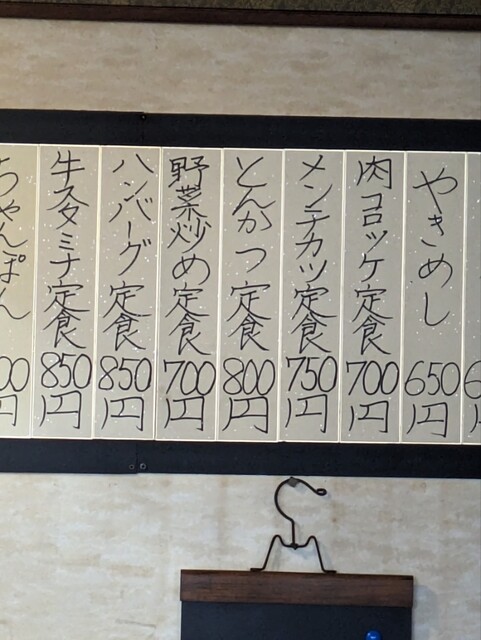 やきめし
650円
肉コロッケ定食
700円
メンチカツ定食
750円
とんかつ定食
800円
野菜炒め定食
700円
ハンバーグ定食
850円
牛スタミナ定食
850円
ちゃんぽん
00円